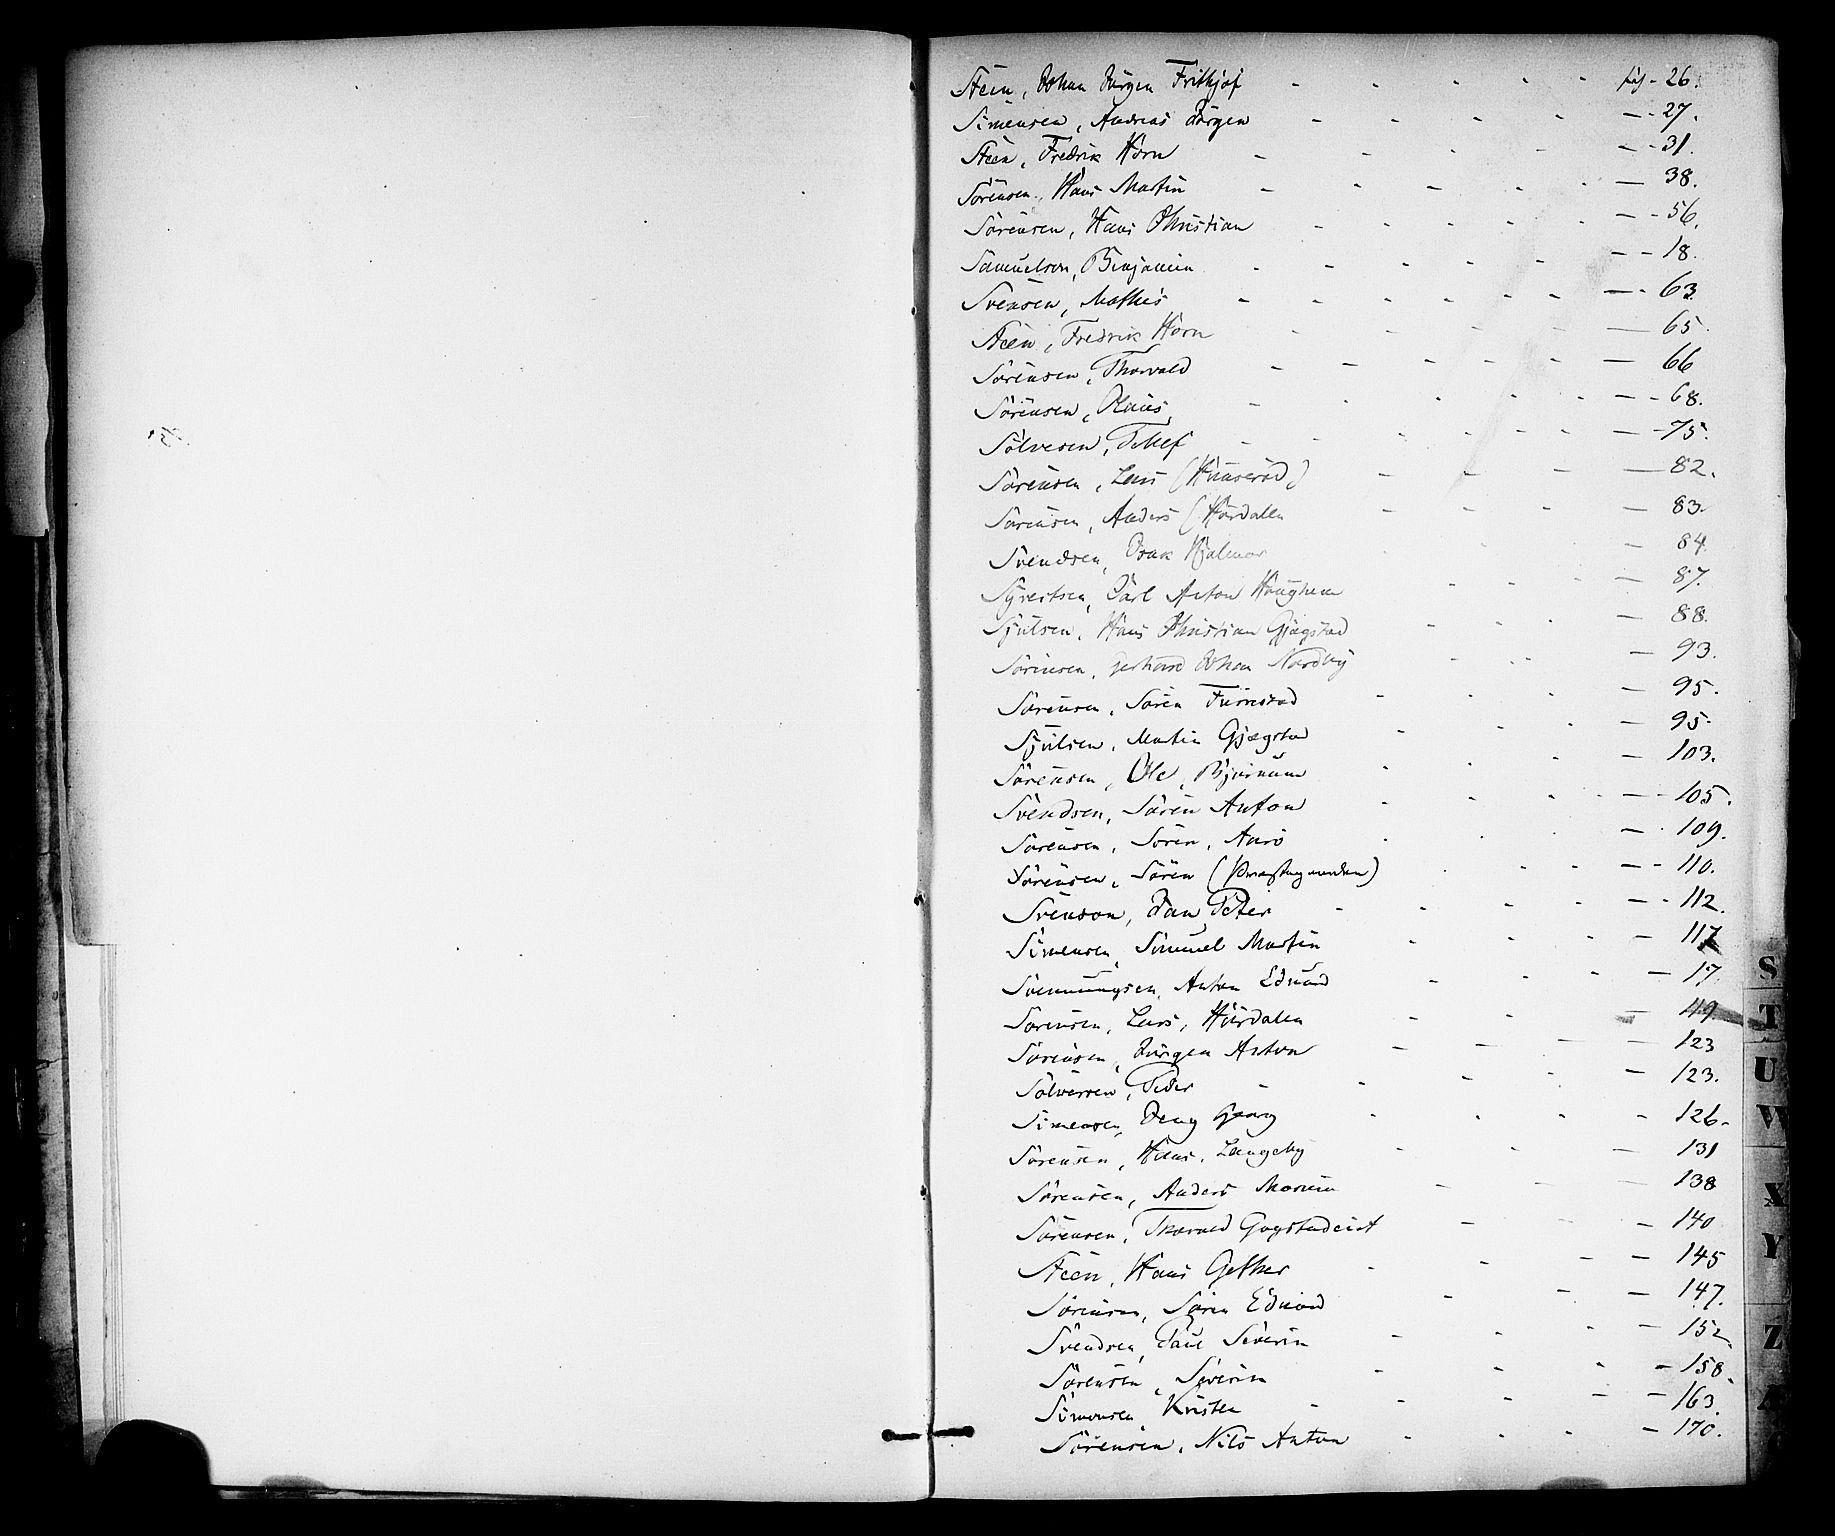 Steen, Johan Jörgen Frithjof - - - - - pag - 26.
Simensen, Andreas Jörgen - - - - - - 27.
Steen, Fredrik Horn - - - - - - 31.
Sörensen, Hans Martin - - - - - - 38.
Sörensen, Hans Christian - - - - - - 56.
Samuelsen, Benjamin - - - - - - - 18.
Svensen, Mathis - - - - - - - - 63
Steen, Fredrik Horn - - - - - - 65.
Sörensen, Thorvald - - - - - - 66
Sörensen, Olaus - - - - - - - 68.
Sölvesen, Tellef - - - - - - - - 75.
Sörensen, Lars (Hunseröd) - - - - 82.
Sörensen, Anders (Hördalen - - - - 83.
Svendsen, Isak Hjalmar - - - - 84
Syvertsen, Carl Anton Haughem - - - - 87.
Sjulsen, Hans Christian Gjøgstad - - - - 88.
Sörensen, Gerhard Johan Nordby - - - 93.
Sörensen, Sören Furustad - - - - 95.
Sjulsen, Martin Gjøgstad - - - - 95.
Sörensen, Ole, Bjurnum - - - - 103.
Svendsen, Sören Anton - - - - - - 105.
Sörensen, Sören, Aarö - - - - - 109.
Sörensen, Sören ( ) - - - - - 110.
Svenson, Jan Peter - - - - - - 112.
Simensen, Simuel Martin - - - - 117
Svennungsen, Anton Edvard - - - - 17.
Sörensen, Lars, Hördalen - - - 49.
Sörensen, Jörgen Anton - - - - 123
Sölvesen, Peder - - - - - 123.
Simensen, Georg - - - - 126.
Sörensen, Hans, Langeby - - - 131
Sörensen, Anders - - - 138
Sörensen, Thorvald Gogstadeiet - - - 140
Steen, Hans Gether - - - - 145
Sörensen, Sören Edvard - - - 147.
Svendsen, Paul Severin - - - - 152
Sörensen, Severin - - - - 158.
Simensen, Kristen - - - - - 163.
Sörensen, Nils Anton - - - - 170.
S
T
U
W
X
Y
Z